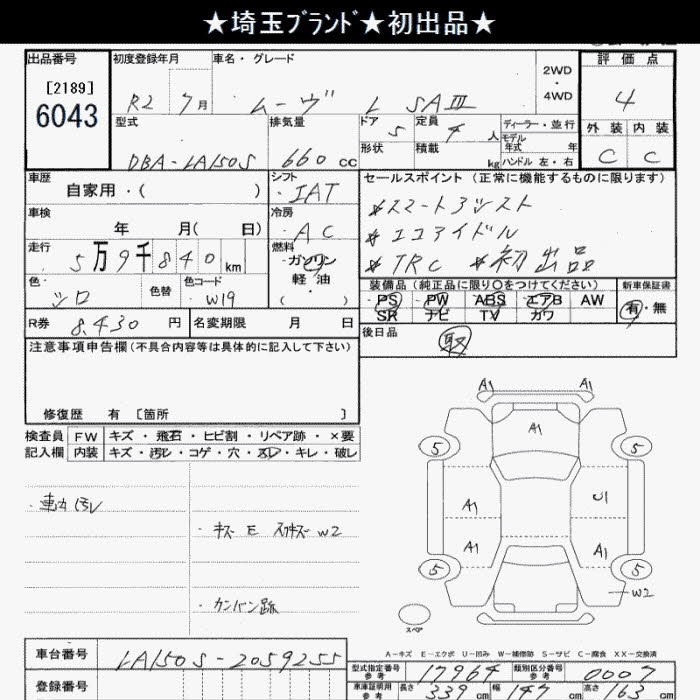 ★埼玉ﾌﾞﾗﾝﾄﾞ★初出品★
出品番号 初度登録年月 車名・グレード 2WD・4WD 評価点
[2189]
6043
R2 7月 ムーヴ L SAⅢ 4
型式 排気量 ドア 5 定員 4人 ディーラー・並行 外装 内装
モデル年式 年
DBA-LA150S 660cc 形状 積載 kg ハンドル 左・右 C C
車歴 シフト セールスポイント (正常に機能するものに限ります)
自家用・( ) IAT
*スマートアシスト
車検 冷房
年 月( 日) AC
*エコアイドル
走行 燃料
5万9千840km ガソリン
軽油
( )
*TRC *初出品
色・ 色替 色コード 装備品(純正品に限り○をつけてください) 新車保証書
シロ W19 PS PW ABS エアB AW 有・無
SR ナビ TV カワ
R券 8,430円 名変期限 月 日 後日品
取
注意事項申告欄(不具合内容等は具体的に記入して下さい)
修復歴 有 [箇所 ]
検査員 FW キズ・飛石・ヒビ割・リペア跡・×要
記入欄 内装 キズ・汚レ・コゲ・穴・スレ・キレ・破レ
・車内汚レ
・キズ E スリキズ W2
・カンバン跡
A1 A1
A1
5 5
A1 U1
A1 A1
5 5
W2
スペア
A-キズ E-エクボ U-凹み W-補修跡 S-サビ C-腐食 XX-交換済
車台番号 LA150S-2059255
型式指定番号 参考 17964 類別区分番号 参考 0007
登録番号
車車証明用 参考 長さ 339cm 幅 147cm 高さ 163cm